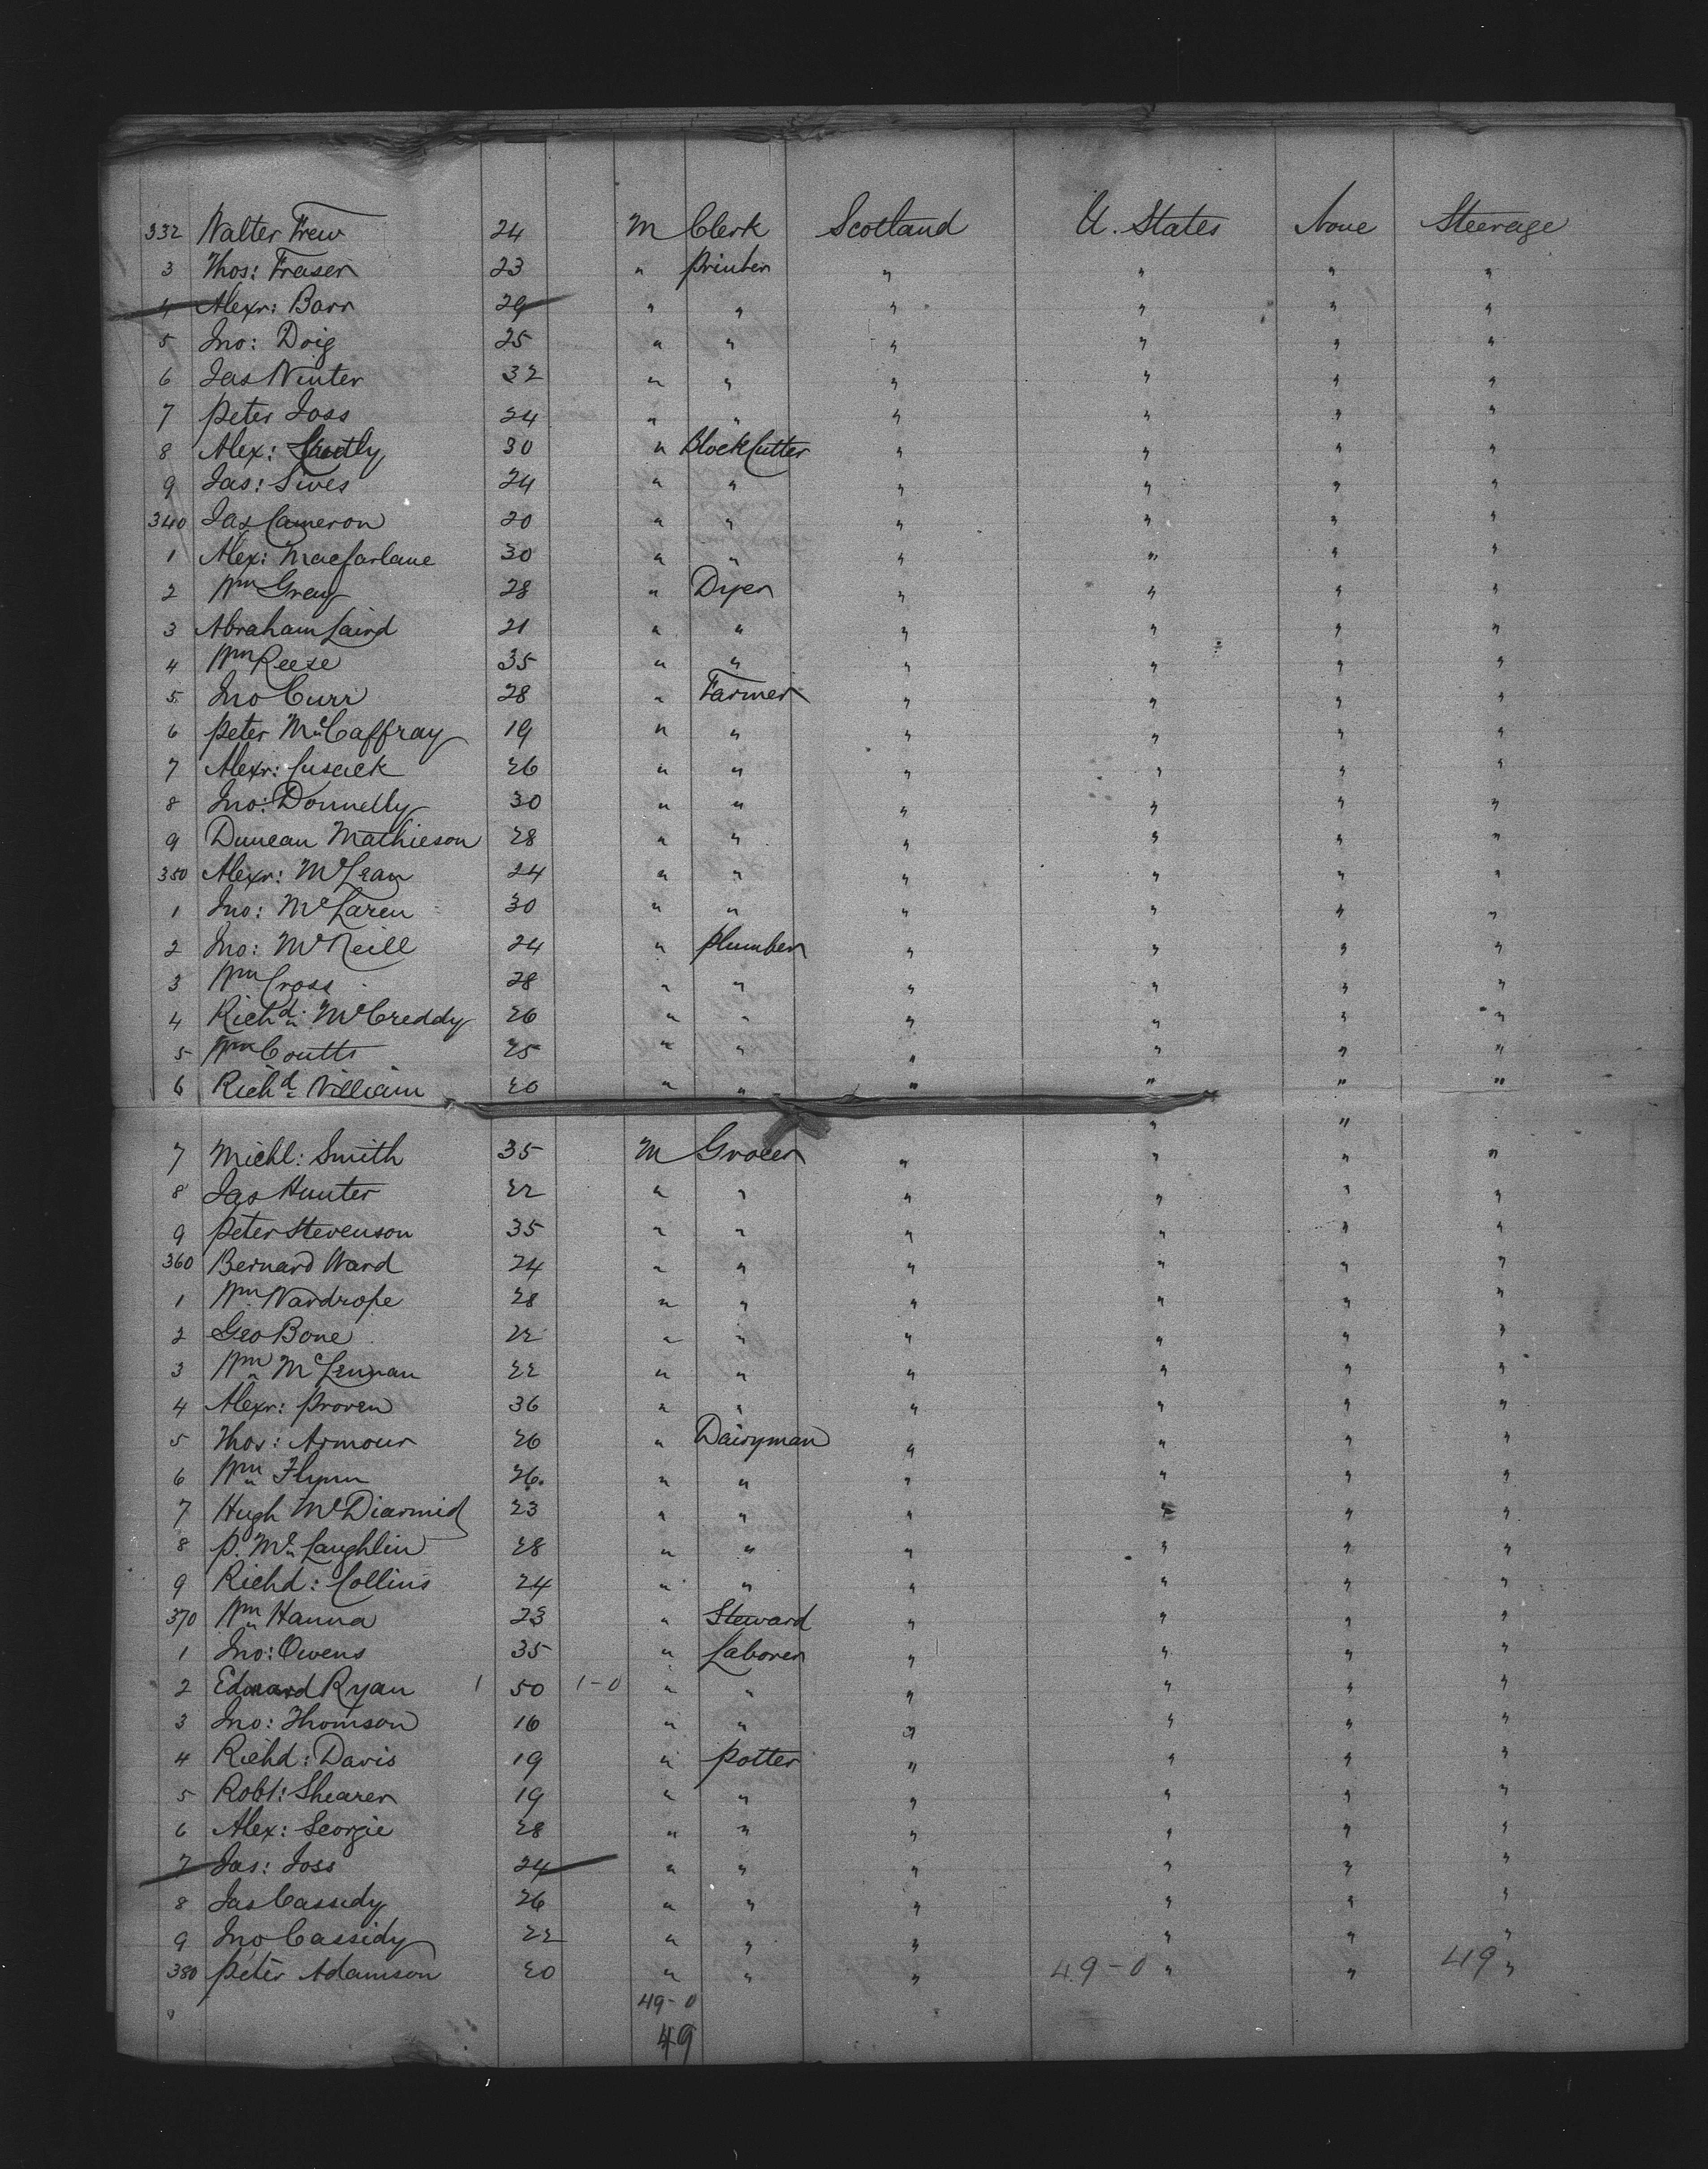 332 Walter Frew 24 M Clerk Scotland U. States None Steerage
3 Thos: Fraser 23 " Printer " " " "
4 Alexr: Barr 29 " " " " " "
5 Jno: Doig 25 " " " " " "
6 Jas Winter 32 " " " " " "
7 Peter Joss 24 " " " " " "
8 Alex: 30 " Block Cutter " " " "
9 Jas: Sives 24 " " " " " "
340 Jas Cameron 20 " " " " " "
1 Alex: Macfarlane 30 " " " " " "
2 Wm Gray 28 " Dyer " " " "
3 Abraham Laird 21 " " " " " "
4 Wm Reese 35 " " " " " "
5 Jno Curr 28 " Farmer " " " "
6 Peter McCaffray 19 " " " " " "
7 Alexr: Cusack 26 " " " " " "
8 Jno: Donnelly 30 " " " " " "
9 Duncan Mathieson 28 " " " " " "
350 Alexr: McLean 24 " " " " " "
1 Jno: McLaren 30 " " " " " "
2 Jno: McNeill 24 " Plumber " " " "
3 Wm Cross 28 " " " " " "
4 Richd: McCreddy 26 " " " " " "
5 Wm Coutts 25 " " " " " "
6 Richd William 20 " " " " " "
" "
7 Michl: Smith 35 M Grocer " " " "
8 Jas Hunter 22 " " " " " "
9 Peter Stevenson 35 " " " " " "
360 Bernard Ward 24 " " " " " "
1 Wm Wardrope 28 " " " " " "
2 Geo Bone 22 " " " " " "
3 Wm McLennan 22 " " " " " "
4 Alexr: Proven 36 " " " " " "
5 Thos: Armour 26 " Dairyman " " " "
6 Wm Flynn 26. " " " " " "
7 Hugh McDiarmid 23 " " " " " "
8 P. McLaughlin 28 " " " " " "
9 Richd: Collins 24 " " " " " "
370 Wm Hanna 23 " Steward " " " "
1 Jno: Owens 35 " Laborer " " " "
2 Edward Ryan 1 50 1-0 " " " " " "
3 Jno: Thomson 16 " " " " " "
4 Richd: Davis 19 " Potter " " " "
5 Robt: Shearer 19 " " " " " "
6 Alex: Scorgie 28 " " " " " "
7 Jas: Joss 24 " " " " " "
8 Jas Cassidy 26 " " " " " "
9 Jno Cassidy 22 " " " " " "
380 Peter Adamson 20 " " " 49-0 " " 49 "
49-0
49